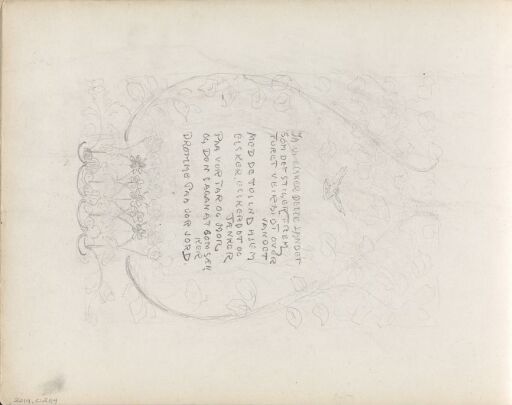 JA VI ELSKER DETTE LANDET
SOM DET STIGER FREM
FURET VEIRBIDT OVER
VANDET
MED DE TUSEND HJEM
ELSKER, ELSKER DET OG
TÆNKER
PAA VOR FAR OG MOR
OG DEN SAGANAT SOM SÆN
KER
DRØMME PAA VOR JORD.